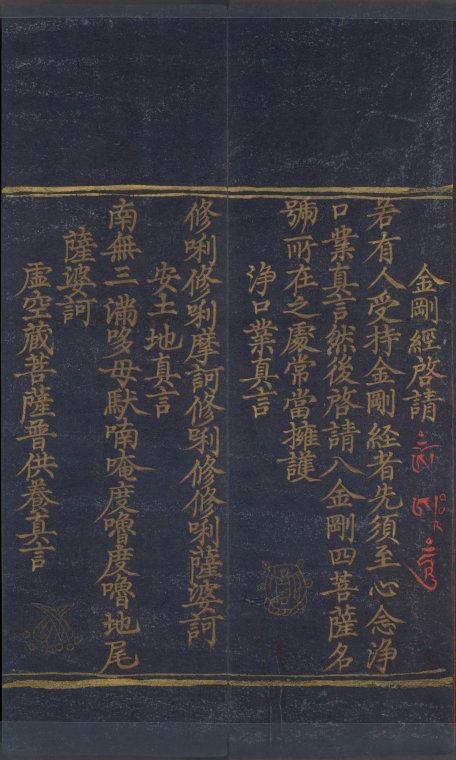 金剛經啓請
若有人受持金剛経者先須至心念淨
口業真言然後啓請八金剛四菩薩名
號所在之處常當擁護
淨口業真言
修唎修唎摩訶修唎修修唎薩婆訶
安土地真言
南無三滿哆母馱喃唵度嚕度嚕地尾
薩婆訶
虛空藏菩薩普供養真言